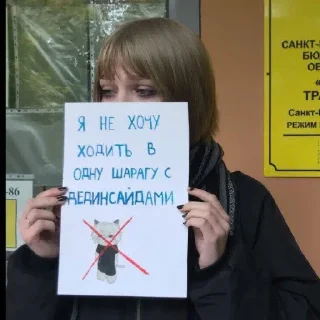 Я НЕ ХОЧУ
ХОДИТЬ В
ОДНУ ШАРАГУ С
ДЕДИНСАЙДАМИ
САНКТ-
БЮ
ОБ
ТРА
Санкт-
РЕЖИМ
-86